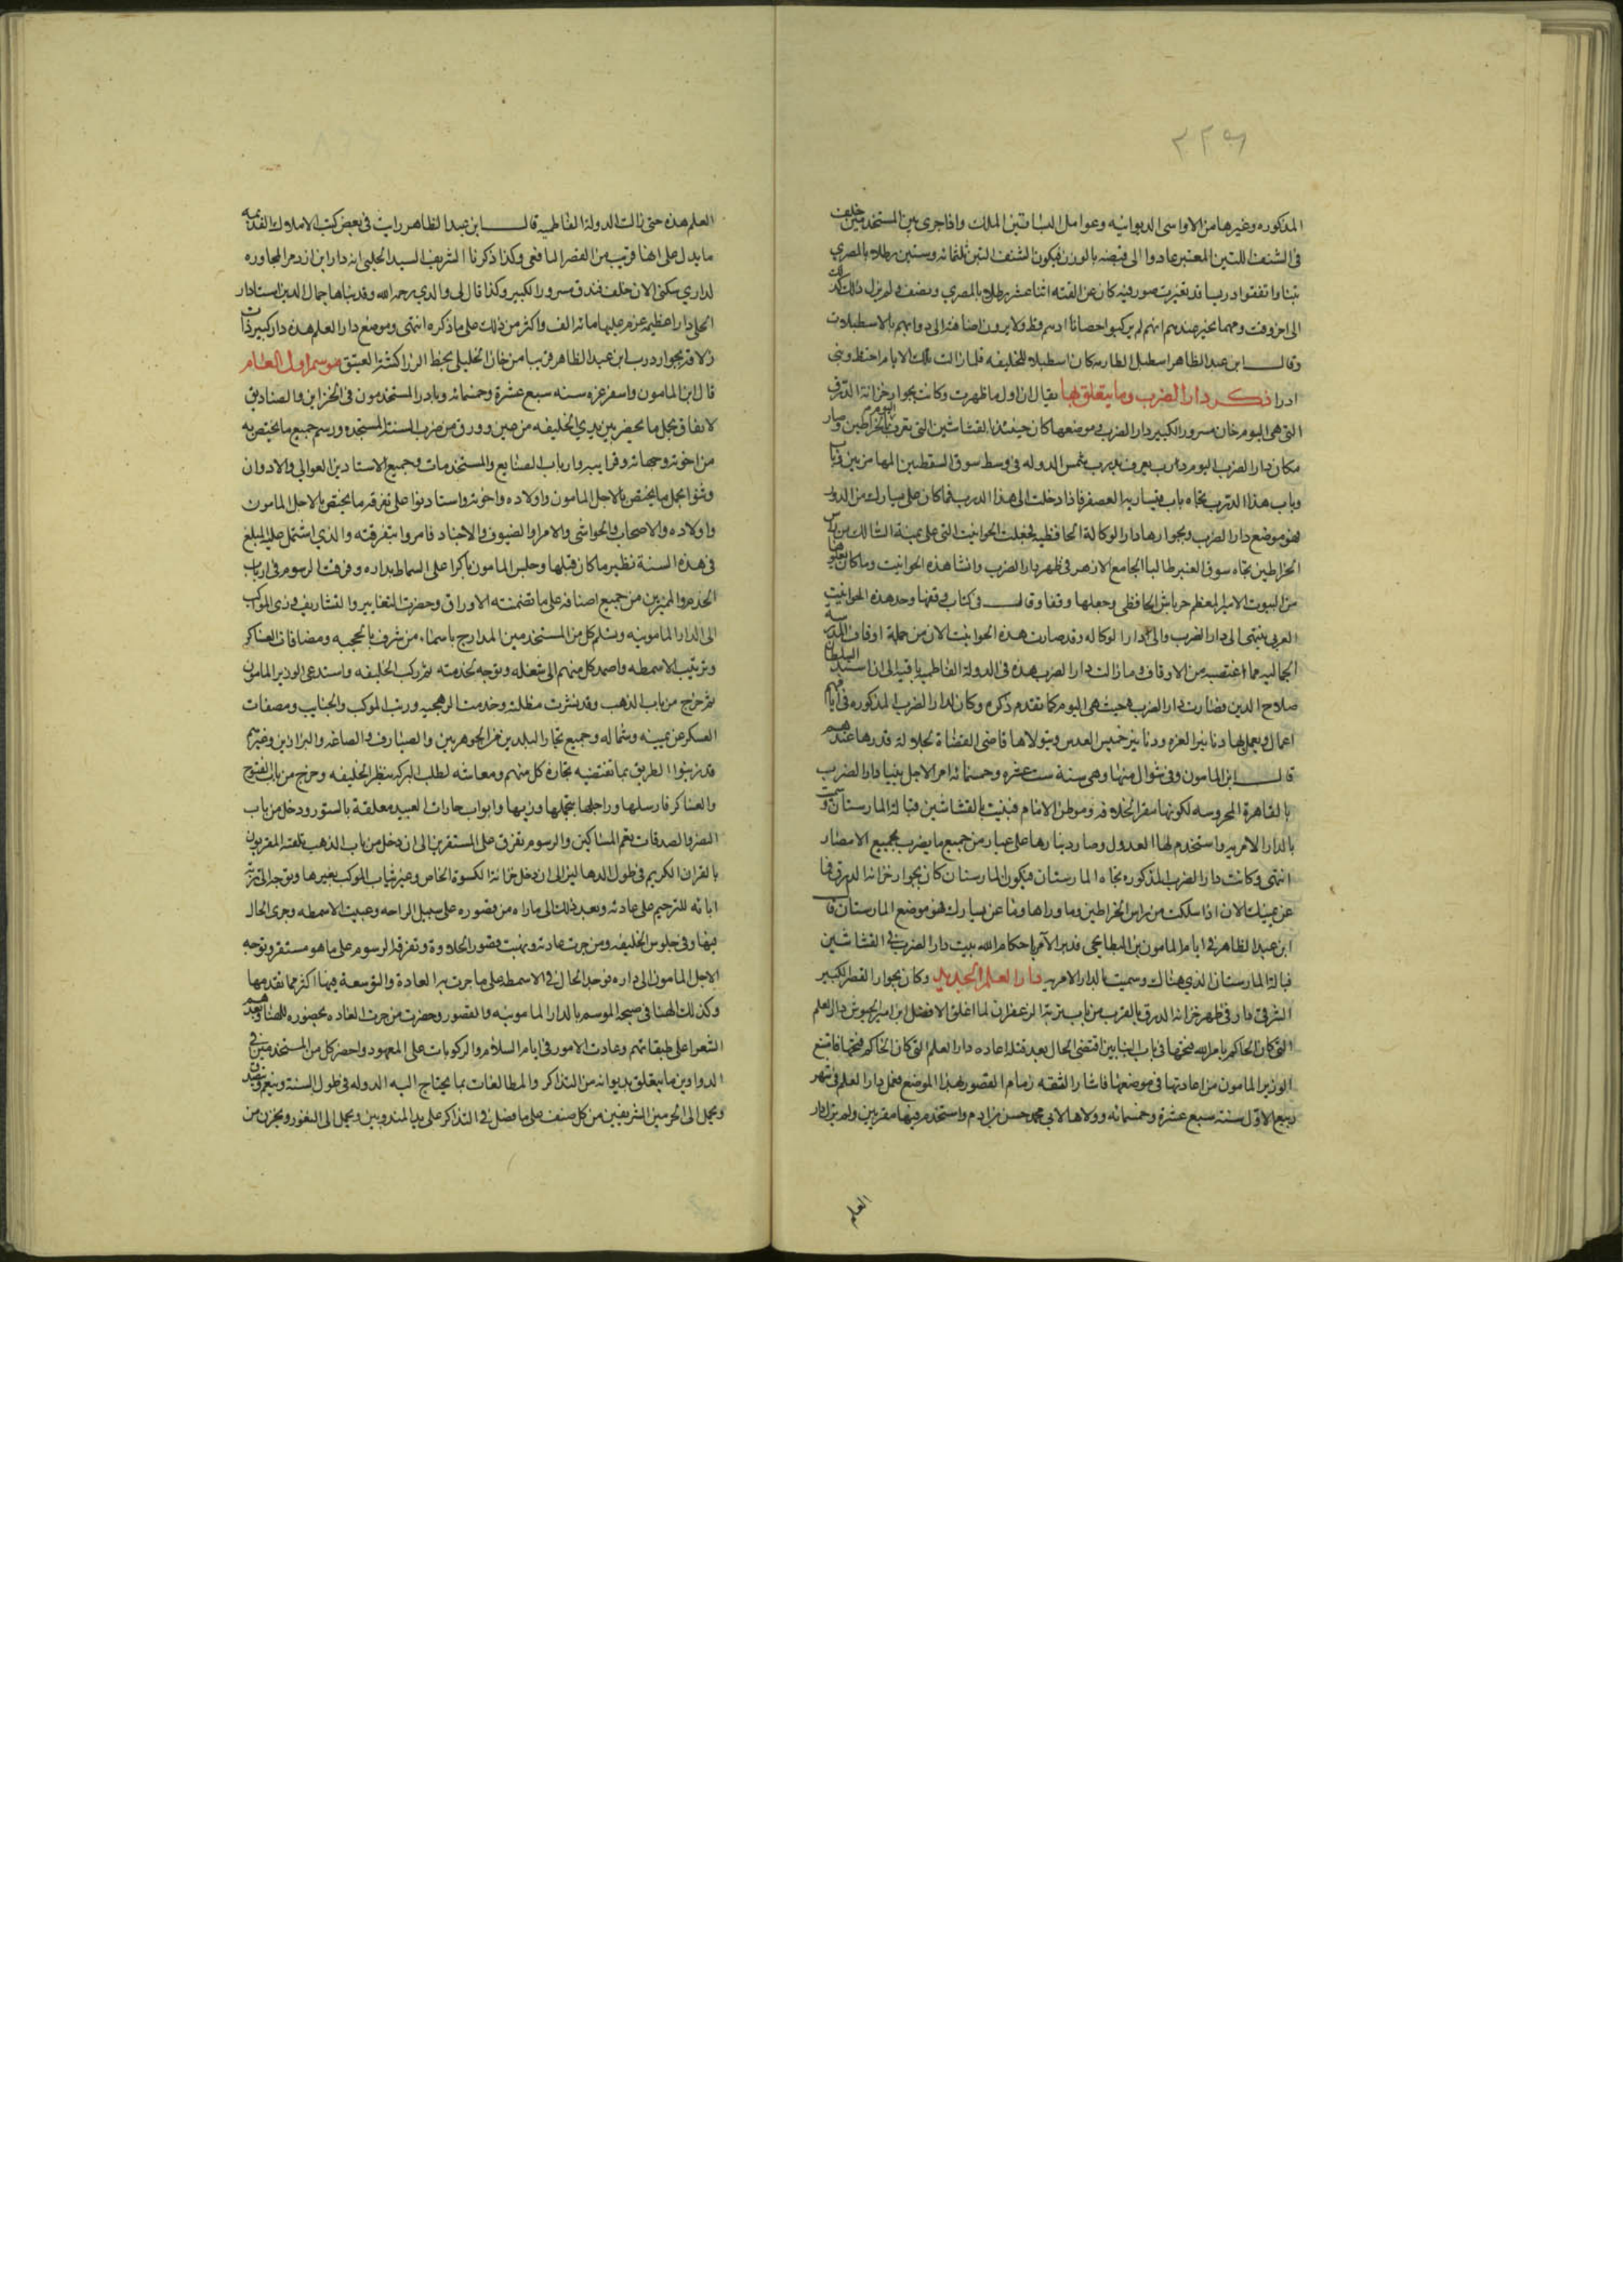 ٢٢٩
المذكوره وغيرها من الاواسى الديوانيه وعوامل البساتين الملك واذا جرى بين المستخدمين خلف
فى الشنف التبن المعتبر عادوا الى قبضه بالوزن فيكون الشنف التبن ثلثمائه وستين رطلا بالمصرى
تبنا واتفقوا دريسا قد تغيرت صورة فيه كان عن القته اثنا عشر رطلا بالمصري ونصف ولم يزل ذلك كذلك
الى اخر وقت ومما يخبر عنهم انهم لم يركبوا حصانا ادهم قط ولا يرون اضافته الى دوابهم بالاسطبلات
وقال ابن عبد الظاهر اسطبل الطارمه كان اسطبلا للخليفه فلما زالت تلك الايام اختط وبنى
ادرا ذكر دار الضرب وما يتعلق بها يقال ان اول ما ظهرت وكانت بجوار خزانة الدرق
التى هى اليوم خان مسرور الكبير دار الضرب موضعها كان حينئذ بالقشاشين التى تعرف اليوم بالخراطين وصار
مكان دار الضرب اليوم درب يعرف بدرب شمس الدوله فى وسط سوق السقطيين المهامزيين
وباب هذا الدرب تجاه باب قيساريه العصفر فاذا دخلت الى هذا الدرب فما كان على يسارك من الدور
فهو موضع دار الضرب وبجوارها دار الوكالة الحافظيه فجعلت الحوانيت التى على يمنة السالك من راس
الخراطين تجاه سوق العنبر طالبا الجامع الازهر فى ظهر دار الضرب وانشا هذه الحوانيت وما كان يعلوها
من البيوت الامير المعظم خرباش الحافظى وجعلها وقفا وقال فى كتاب وقفها وحد هذه الحوانيت
الغربى ينتهى الى دار الضرب والى دار الوكاله وقد صارت هذه الحوانيت الان من جملة اوقاف المدرسة
الجماليه مما اغتصب من الاوقاف وما زالت دار الضرب هذه فى الدولة الفاطميه باقيه الى ان استبد السلطان
صلاح الدين فصارت دار الضرب حيث هى اليوم كما تقدم ذكره وكان لدار الضرب المذكوره فى ايامهم
اعمال ويعمل بها دنانير الغره ودنانير خميس العدس ويتولاها قاضى القضاة لجلالة قدرها عندهم
قال ابن المامون وفى شوال منها وهى سنة ست عشره وخمسمائه امر الاجل ببنيا دار الضرب
بالقاهرة المحروسه لكونها مقر الخلافه وموطن الامام فبنيت بالقشاشين قبالة المارستان وسميت
بالدار الامريه واستخدم لها العدول وصار دينارها على عيار من جميع ما يضرب بجميع الامصار
انتهى وكانت دار الضرب المذكوره تجاه المارستان فيكون المارستان كان بجوار خزانة الدرق فما
عن يمينك الان اذا سلكت من راس الخراطين وما وراها وما عن يسارك هو موضع المارستان قال
ابن عبد الظاهر فى ايام المامون بن البطايحى فدبر الآمر باحكام الله بيت دار الضرب فى القشاشين
قبالة المارستان الذي هناك وسميت بالدار الامريه دار العلم الجديد وكان بجوار القصر الكبير
الشرقى دار فى ظهر خزانة الدرق بالقرب من باب تربة الزعفران لما اغلق الافضل ابن امير الجيوش دار العلم
التى كان الحاكم بامر الله فتحها فى باب التبانين اقتضى الحال بعد قتله اعاده دار العلم التى كان الحاكم فتحها فامتنع
الوزير المامون من اعادتها فى موضعها فاشار الثقه زمام القصور بهذا الموضع فعمل دار العلم فى شهر
ربيع الاول سنة سبع عشرة وخمسمائه وولاها لابى محمد حسن بن ادم واستخدم فيها مقريين ولم يزل دار
العلم
العلم هذه حتى زالت الدولة الفاطميه قال ابن عبد الظاهر رايت فى بعض كتب الاملاك القديمه
ما يدل على انها قريب من القصر النافعى وكذا ذكر لنا الشريف السيد الحلبى انه دار ابن ازدمر المجاوره
لداري سكنى الان خلف فندق مسرور الكبير وكذا قال لى والدي رحمه الله وقد بناها جمال الدين استادار
الحلبى دارا عظيمه غرم عليها مائه الف واكثر من ذلك على ما ذكره انتهى وموضع دار العلم هذه دار كبيرة ذات
زلاقه بجوار درب ابن عبد الظاهر قريبا من خان الخليلى بخط الزراكشة العتيق موسم اول العام
قال ابن المامون واسفر غره سنه سبع عشرة وخمسمائه وبادر المستخدمون فى الخزاين والصناديق
لانفاق بحمل ما يحضر بين يدي الخليفه من عين وورق من ضرب السنة المستجده ورسم جميع ما يختص به
من اخوته وجهاته وقرايبه وارباب الصنايع والمستخدمات وجميع الاستادين العوالى والادوان
وثنوا بحمل ما يختص بالاجل المامون واولاده واخوته واستاذنوا على تفرقه ما يختص بالاجل المامون
واولاده والاصحاب والحواشى والامرا والضيوف والاجناد فامروا بتفرقته والذي اشتمل عليه المبلغ
فى هذه السنة نظير ما كان قبلها وجلس المامون باكرا على السماط بداره وفرقت الرسوم فى ارباب
الخدم والمميزين من جميع اصنافه على ما تضمنته الاوراق وحضرت التغايير والتشاريف وزى الموكب
الى الدار المامونيه وتسلم كل من المستخدمين المدارج باسماء من شرف بالحجبه ومصافات العساكر
وترتيب الاسمطه واصمد كل منهم الى شغله وتوجه لخدمته ثم ركب الخليفه واستدعى الوزير المامون
ثم خرج من باب الذهب وقد نشرت مظلته وخدمت الرهجيه ورتب الموكب والجنايب ومصفات
العسكر عن يمينه وشماله وجميع تجار البلدين من الجوهريين والصيارف والصاغه والبزازين وغيرهم
قد زينوا الطريق بما تقتضيه تجارة كل منهم ومعاشه لطلب البركه بنظر الخليفه وخرج من باب الفتوح
والعساكر فارسها وراجلها بتجملها وزيها وابواب حارات العبيد معلقة بالستور ودخل من باب
النصر والصدقات تعم المساكين والرسوم تفرق على المستقرين الى ان دخل من باب الذهب فلقته المقريون
بالقران الكريم فى طول الدهاليز الى ان دخل خزانة الكسوة الخاص وغير ثياب الموكب بغيرها وتوجه الى تربة
ابائه للترحيم على عادته وبعد ذلك الى ما راه من قصوره على سبيل الراحه وعبيت الاسمطه وجرى الحال
فيها وفى جلوس الخليفه ومن جرت عادته وتهيت قصور الخلافة وتفرقة الرسوم على ما هو مستقر وتوجه
الاجل المامون الى داره فوجد الحال فى الاسمطه على ما جرت به العادة والتوسعة فيها اكثر مما تقدمها
وكذلك الهنا فى صبيحه الموسم بالدار المامونيه والقصور وحضرت من جرت العاده بحضوره للهنا وبعدهم
الشعرا على طبقاتهم وعادت الامور فى ايام السلام والركوبات على المعهود واحضر كل من المستخدمين فى
الدواوين ما يتعلق بديوانه من التذاكر والمطالعات بما يحتاج اليه الدوله فى طول السنة وينعم ويتصدق
ويحمل الى الحرمين الشريفين من كل صنف على ما فصل فى التذاكر على يد المندوبين ويحمل الى الثغور ويخزن من